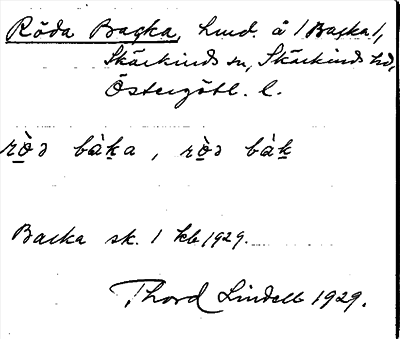 Röda Backa, lund. å /Backa/,
Skärkinds sn, Skärkinds hd,
Östergötl. l.
rò̱ə bàḵa, rò̱ə bàḵ
Backa sk. 1 kb 1929.
Thord Lindell 1929.